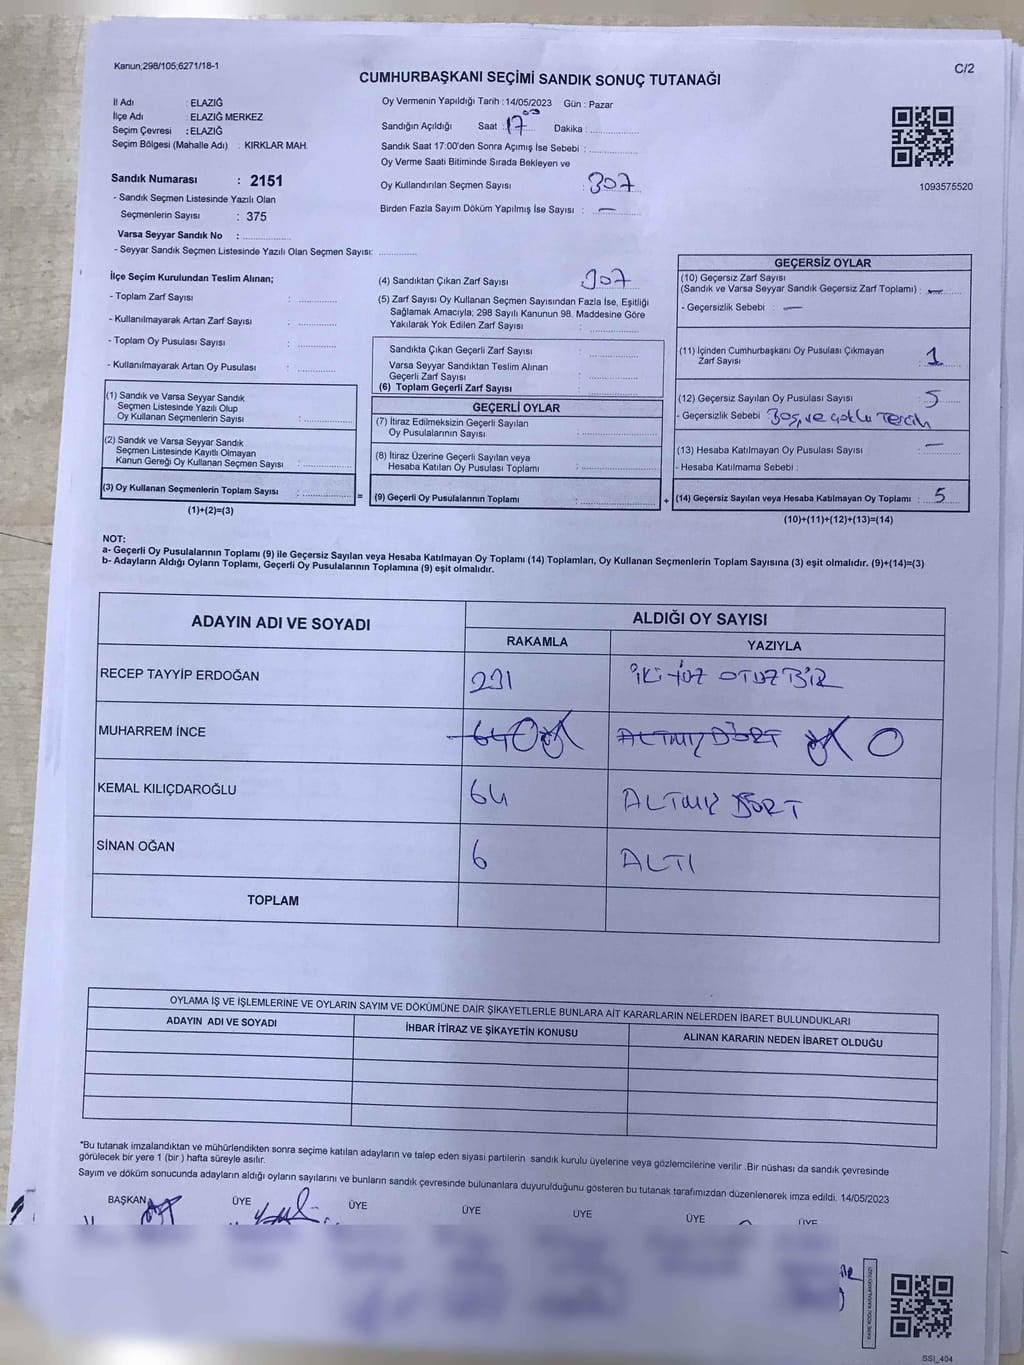 Kanun,298/105,6271/18-1
C/2
CUMHURBAŞKANI SEÇİMİ SANDIK SONUÇ TUTANAĞI
İl Adı : ELAZIĞ
İlçe Adı : ELAZIĞ MERKEZ
Seçim Çevresi : ELAZIĞ
Seçim Bölgesi (Mahalle Adı) : KIRKLAR MAH.
Sandık Numarası : 2151
- Sandık Seçmen Listesinde Yazılı Olan
Seçmenlerin Sayısı : 375
Varsa Seyyar Sandık No :
- Seyyar Sandık Seçmen Listesinde Yazılı Olan Seçmen Sayısı:
Oy Vermenin Yapıldığı Tarih :14/05/2023 Gün : Pazar
Sandığın Açıldığı Saat : 17 00 Dakika :
Sandık Saat 17:00'den Sonra Açımış İse Sebebi :
Oy Verme Saati Bitiminde Sırada Bekleyen ve
Oy Kullandırılan Seçmen Sayısı : 307
Birden Fazla Sayım Döküm Yapılmış İse Sayısı : —
1093575520
İlçe Seçim Kurulundan Teslim Alınan;
- Toplam Zarf Sayısı :
- Kullanılmayarak Artan Zarf Sayısı :
- Toplam Oy Pusulası Sayısı :
- Kullanılmayarak Artan Oy Pusulası :
(1) Sandık ve Varsa Seyyar Sandık
Seçmen Listesinde Yazılı Olup
Oy Kullanan Seçmenlerin Sayısı :
(2) Sandık ve Varsa Seyyar Sandık
Seçmen Listesinde Kayıtlı Olmayan
Kanun Gereği Oy Kullanan Seçmen Sayısı :
(3) Oy Kullanan Seçmenlerin Toplam Sayısı :
(1)+(2)=(3)
(4) Sandıktan Çıkan Zarf Sayısı : 307
(5) Zarf Sayısı Oy Kullanan Seçmen Sayısından Fazla İse, Eşitliği
Sağlamak Amacıyla; 298 Sayılı Kanunun 98. Maddesine Göre
Yakılarak Yok Edilen Zarf Sayısı :
Sandıkta Çıkan Geçerli Zarf Sayısı :
Varsa Seyyar Sandıktan Teslim Alınan
Geçerli Zarf Sayısı :
(6) Toplam Geçerli Zarf Sayısı :
GEÇERLİ OYLAR
(7) İtiraz Edilmeksizin Geçerli Sayılan
Oy Pusulalarının Sayısı :
(8) İtiraz Üzerine Geçerli Sayılan veya
Hesaba Katılan Oy Pusulası Toplamı :
= (9) Geçerli Oy Pusulalarının Toplamı :
GEÇERSİZ OYLAR
(10) Geçersiz Zarf Sayısı
(Sandık ve Varsa Seyyar Sandık Geçersiz Zarf Toplamı) : —
- Geçersizlik Sebebi : —
(11) İçinden Cumhurbaşkanı Oy Pusulası Çıkmayan
Zarf Sayısı : 1
(12) Geçersiz Sayılan Oy Pusulası Sayısı : 5
- Geçersizlik Sebebi : Boş, ve çoklu Tercih
(13) Hesaba Katılmayan Oy Pusulası Sayısı : —
- Hesaba Katılmama Sebebi :
+ (14) Geçersiz Sayılan veya Hesaba Katılmayan Oy Toplamı : 5
(10)+(11)+(12)+(13)=(14)
NOT:
a- Geçerli Oy Pusulalarının Toplamı (9) ile Geçersiz Sayılan veya Hesaba Katılmayan Oy Toplamı (14) Toplamları, Oy Kullanan Seçmenlerin Toplam Sayısına (3) eşit olmalıdır. (9)+(14)=(3)
b- Adayların Aldığı Oyların Toplamı, Geçerli Oy Pusulalarının Toplamına (9) eşit olmalıdır.
ADAYIN ADI VE SOYADI
ALDIĞI OY SAYISI
RAKAMLA YAZIYLA
RECEP TAYYİP ERDOĞAN 231 İKİ YÜZ OTUZ BİR
MUHARREM İNCE 64 0 ALTMIŞ DÖRT 0
KEMAL KILIÇDAROĞLU 64 ALTMIŞ DÖRT
SİNAN OĞAN 6 ALTI
TOPLAM
OYLAMA İŞ VE İŞLEMLERİNE VE OYLARIN SAYIM VE DÖKÜMÜNE DAİR ŞİKAYETLERLE BUNLARA AİT KARARLARIN NELERDEN İBARET BULUNDUKLARI
ADAYIN ADI VE SOYADI İHBAR İTİRAZ VE ŞİKAYETİN KONUSU ALINAN KARARIN NEDEN İBARET OLDUĞU
*Bu tutanak imzalandıktan ve mühürlendikten sonra seçime katılan adayların ve talep eden siyasi partilerin sandık kurulu üyelerine veya gözlemcilerine verilir .Bir nüshası da sandık çevresinde
görülecek bir yere 1 (bir ) hafta süreyle asılır.
Sayım ve döküm sonucunda adayların aldığı oyların sayılarını ve bunların sandık çevresinde bulunanlara duyurulduğunu gösteren bu tutanak tarafımızdan düzenlenerek imza edildi. 14/05/2023
BAŞKAN ÜYE ÜYE ÜYE ÜYE ÜYE ÜYE
SSI_404